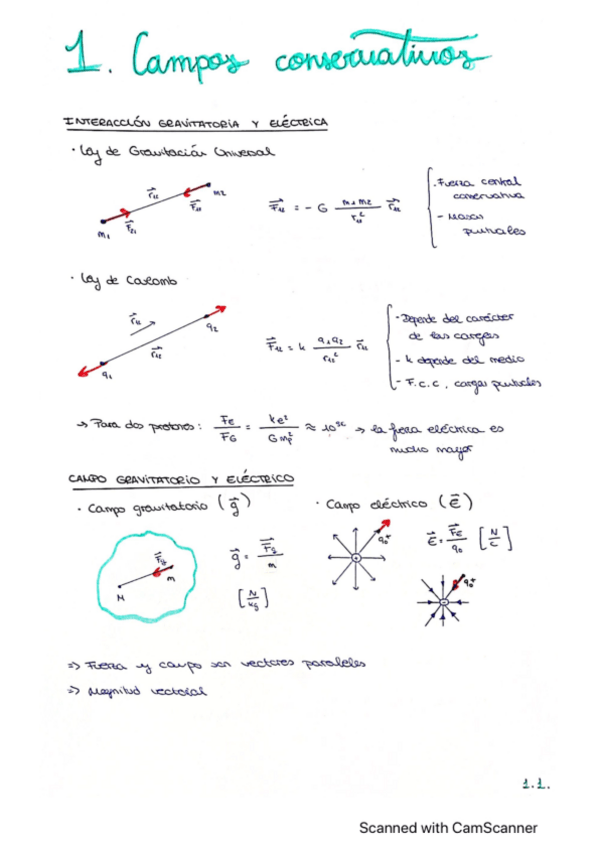 1. Campos conservativos
INTERACCIÓN GRAVITATORIA Y ELÉCTRICA
· Ley de Gravitación Universal
m1 F21 r12 F12 m2
F12 = - G m1 m2 / r12² r12
- Fuerza central
conservativa
- Masas
puntuales
· Ley de Coulomb
r12 r12 q1 q2
F12 = k q1 q2 / r12² r12
- Depende del carácter
de las cargas
- k depende del medio
- F.C.C, cargas puntuales
→ Para dos protones: FE / FG = k e² / G mp² ≈ 10³⁶ → la fuerza eléctrica es
mucho mayor
CAMPO GRAVITATORIO Y ELÉCTRICO
· Campo gravitatorio (g)
· Campo eléctrico (E)
M Fg m
g = Fg / m
[N / kg]
+ q0+
E = FE / q0 [N / C]
- q0+
=> Fuerza y campo son vectores paralelos
=> Magnitud vectorial
1.1.
Scanned with CamScanner